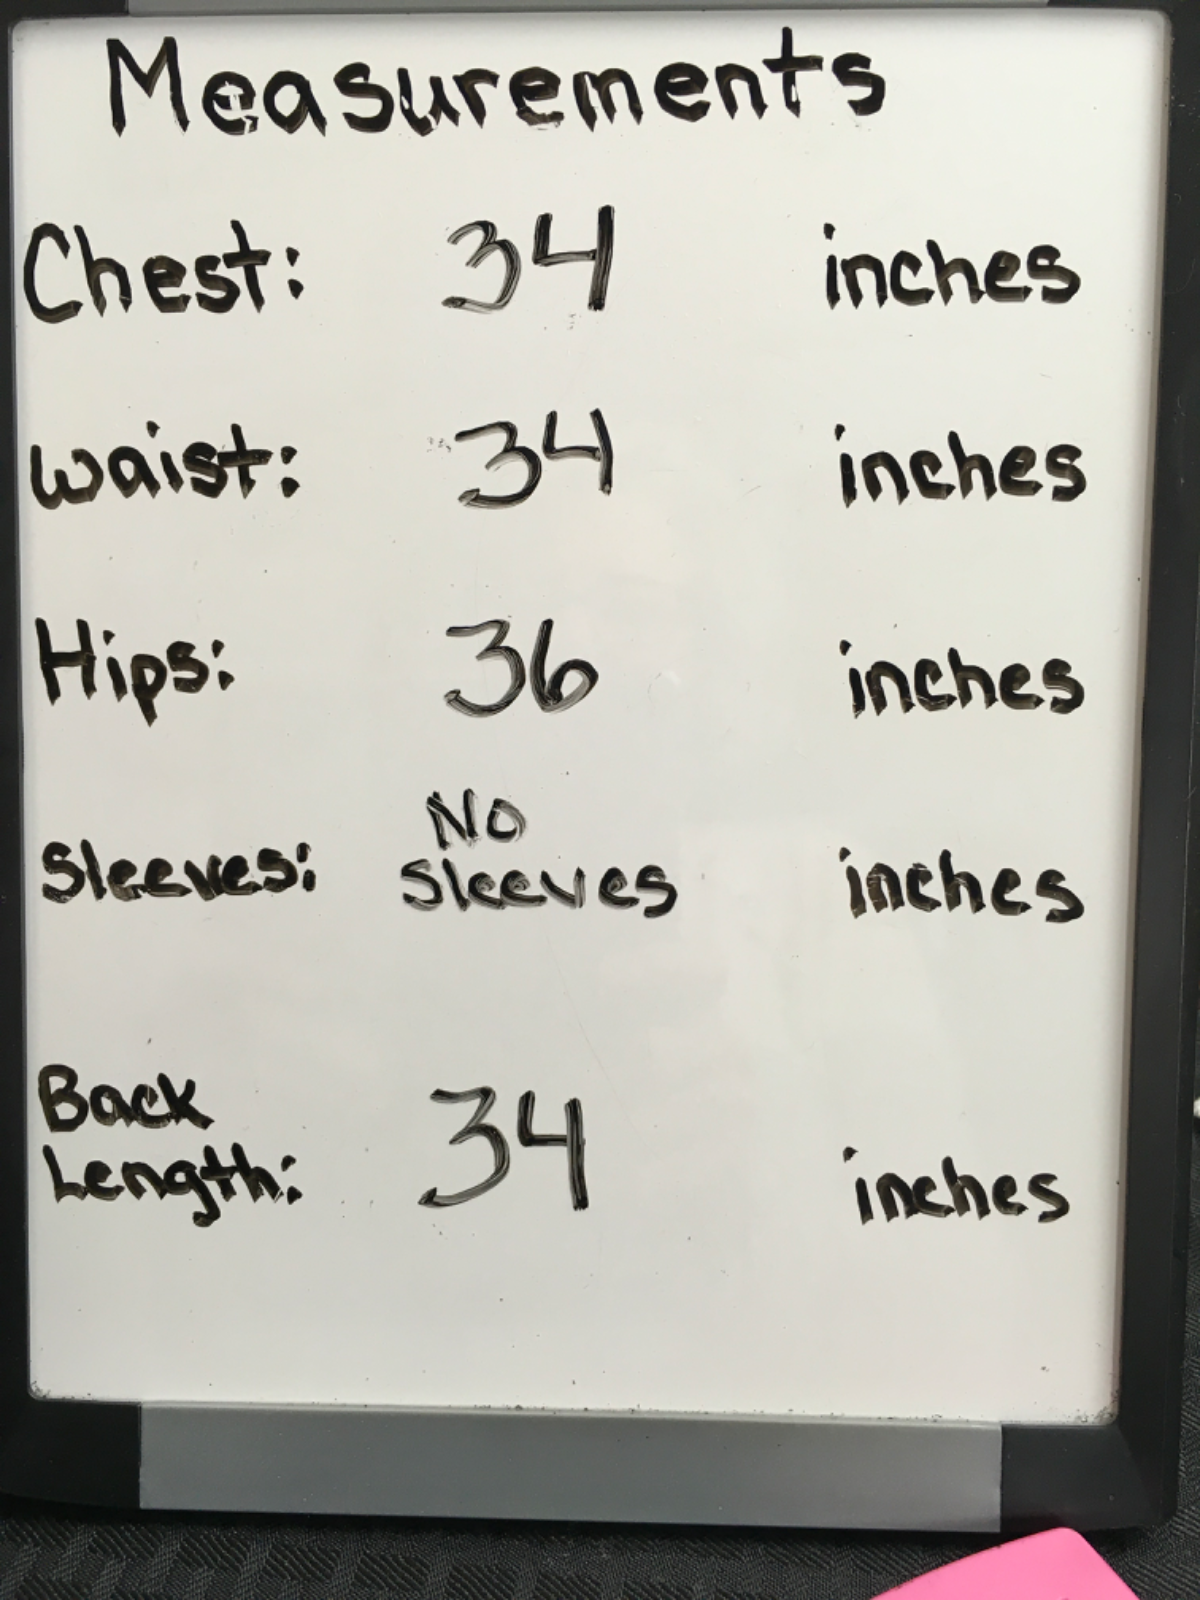 Measurements
Chest: 34 inches
waist: 34 inches
Hips: 36 inches
No
Sleeves: Sleeves inches
Back
Length: 34 inches